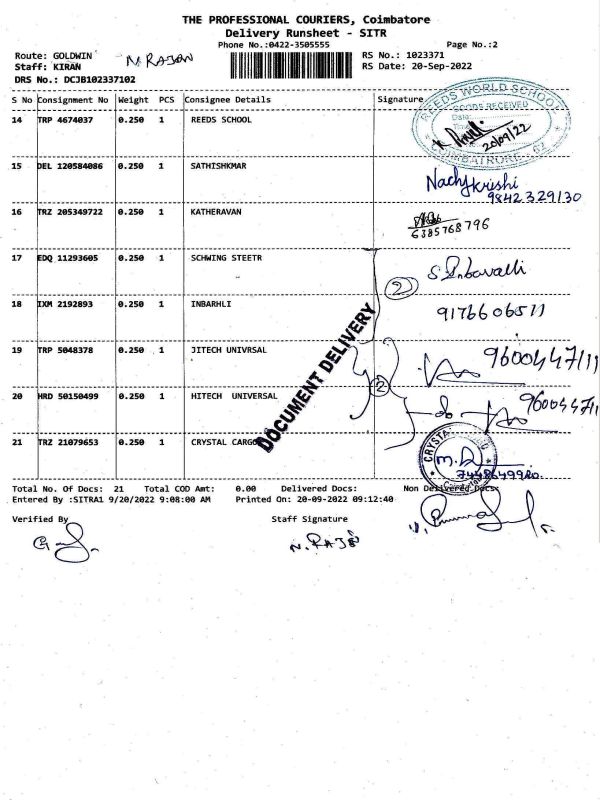 THE PROFESSIONAL COURIERS, Coimbatore
Delivery Runsheet - SITR
Phone No.:0422-3505555 Page No.:2
Route: GOLDWIN N. RAJAN RS No.: 1023371
Staff: KIRAN RS Date: 20-Sep-2022
DRS No.: DCJB102337102
S No Consignment No Weight PCS Consignee Details Signature
14 TRP 4674037 0.250 1 REEDS SCHOOL
REEDS WORLD SCHOOL
GOODS RECEIVED
Date:
20/09/22
COIMBATRORE - 62
15 DEL 120584086 0.250 1 SATHISHKMAR
Nachykrishi
9842329130
16 TRZ 205349722 0.250 1 KATHERAVAN
6385768796
17 EDQ 11293605 0.250 1 SCHWING STEETR
2
18 IXM 2192893 0.250 1 INBARHLI 9176606511
DOCUMENT DELIVERY
19 TRP 5048378 0.250 1 JITECH UNIVRSAL 9600447111
2
20 HRD 50150499 0.250 1 HITECH UNIVERSAL -do- 960044711
21 TRZ 21079653 0.250 1 CRYSTAL CARGO
CRYSTAL
Total No. Of Docs: 21 Total COD Amt: 0.00 Delivered Docs: Non Delivered Docs:
Entered By :SITRA1 9/20/2022 9:08:00 AM Printed On: 20-09-2022 09:12:40
Verified By Staff Signature
N. RAJAN